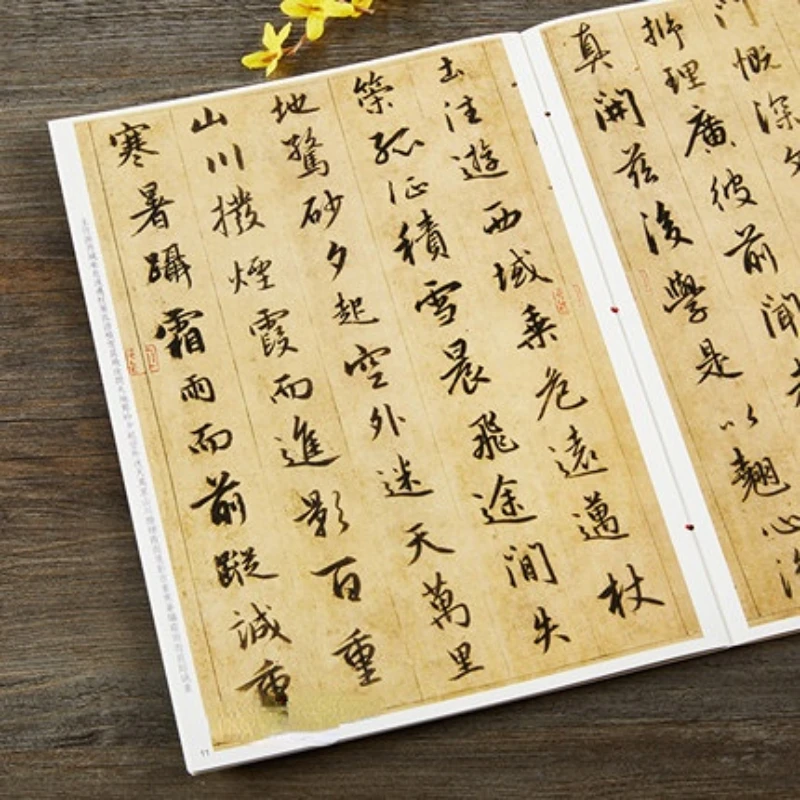 慨深文
析理廣彼前聞
真開茲後學是以翹心淨
土往遊西域乘危遠邁杖
策孤征積雪晨飛途間失
地驚砂夕起空外迷天萬里
山川撥煙霞而進影百重
寒暑躡霜雨而前蹤誠重
11